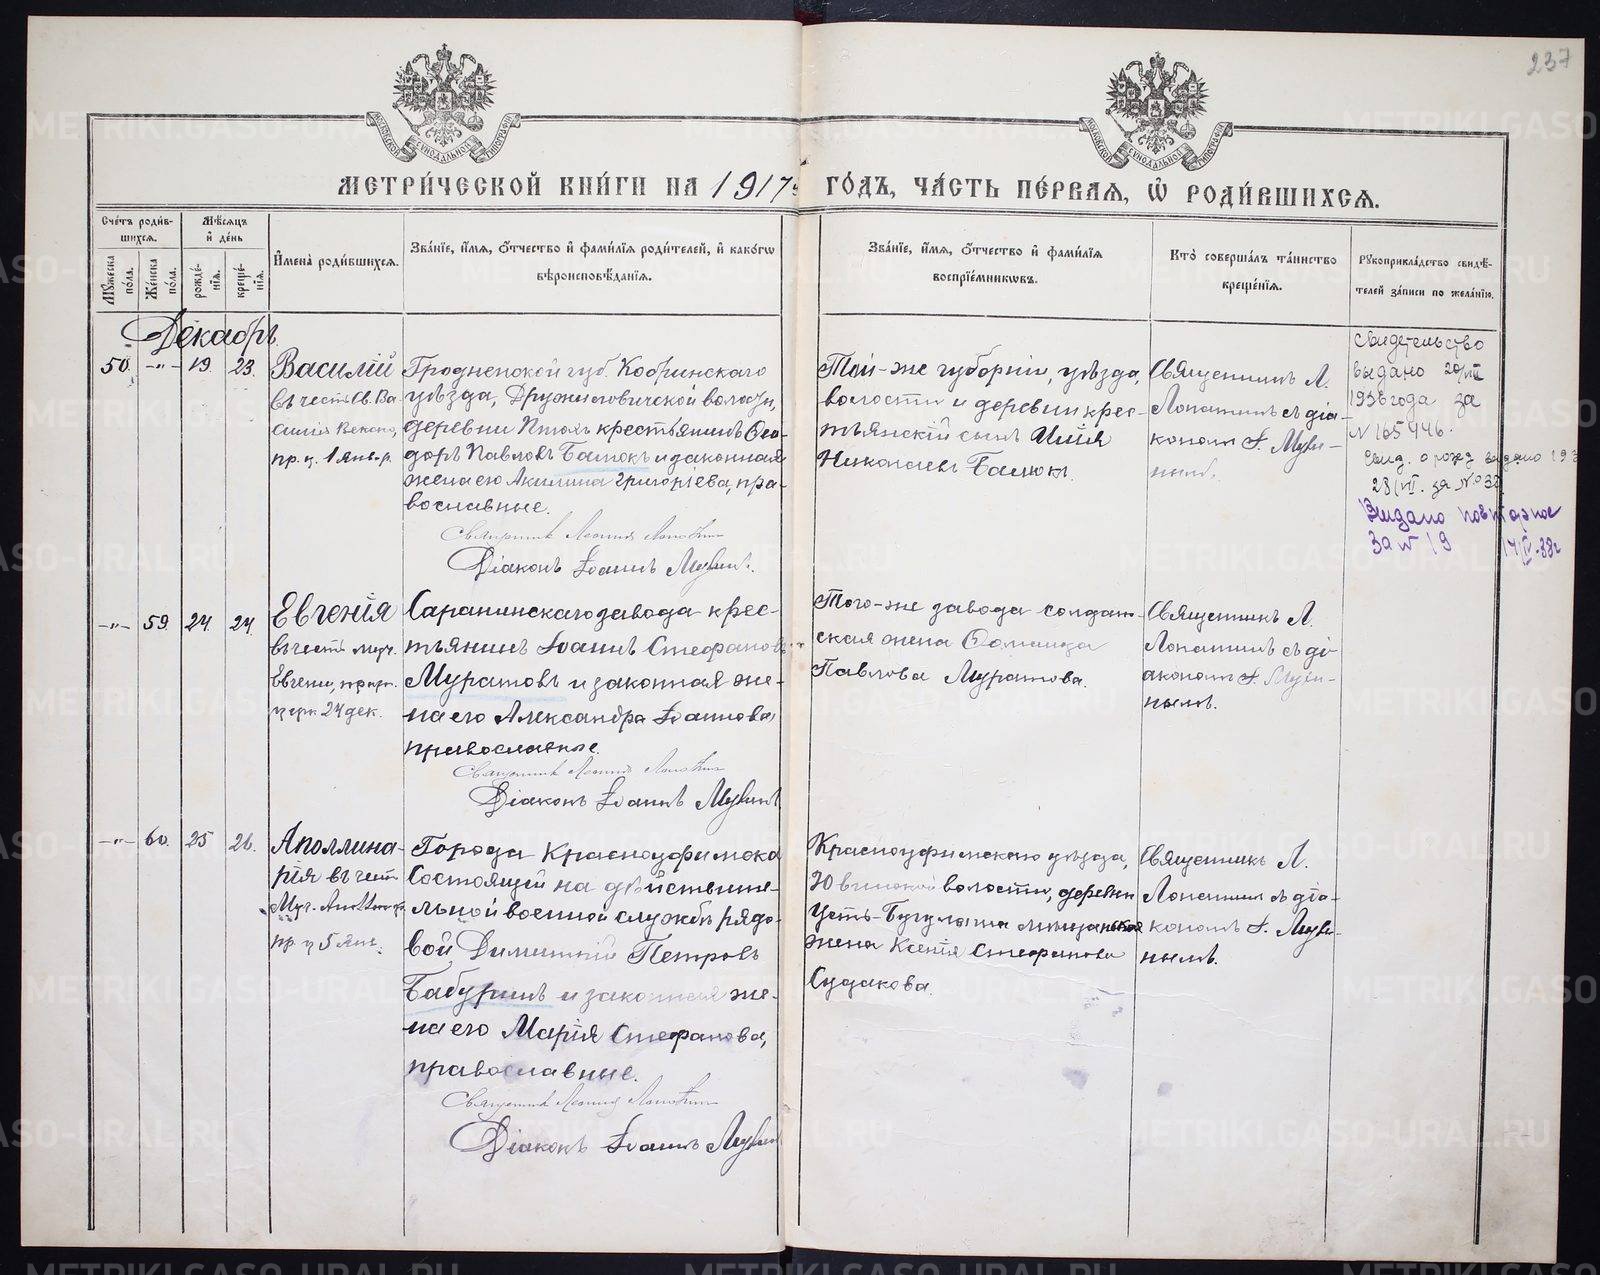 237
МЕТРИ́ЧЕСКОЙ КНИ́ГИ НА 1917й ГО́ДЪ, ЧА́СТЬ ПЕ́РВАЯ, Ѡ РОДИ́ВШИХСЯ.
Сче́тъ роди́в-
шихся.
Мꙋ́жеска по́ла.
Же́нска по́ла.
Мѣ́сяцъ
и де́нь
рожде́-
нїя.
креще́-
нїя.
Имена̀ роди́вшихся.
Зва́нїе, и́мя, о́тчество и фами́лїя роди́телей, и како́гѡ
вѣроисповѣ́данїя.
Зва́нїе, и́мя, о́тчество и фами́лїя
воспрїе́мникѡвъ.
Кто̀ соверша́лъ та́инство
креще́нїя.
Рꙋкоприкла́дство свидѣ́-
телей за́писи по жела́нїю.
Декабрь
50. -„- 19. 23.
Василій
въ честь Св. Ва
силія Великаго,
пр. ц. 1 Янв-р.
Гродненской губ. Кобринскаго
уѣзда, Дружиловичской волости,
деревни крестьянинъ Ѳео-
доръ Павловъ Басюкъ и законная
жена его Акилина Григоріева, пра-
вославные.
Священникъ Леонидъ Лопатинъ
Діаконъ Іоаннъ
Той-же губерніи, уѣзда,
волости и деревни крес-
тьянскій сынъ Илія
Николаевъ Басюкъ.
Священникъ Л.
Лопатинъ съ діа-
кономъ І.
Свидетельство
выдано 20/VII
1936 года за
N 165446.
Свид. о рожд выдано 193
28/VII. за №
Выдано повторное
За № 19 14/IV-38г
-„- 59. 24. 24.
Евгенія
въ честь муч.
Евгеніи,
церк. 24 дек.
Саранинскаго завода крес-
тьянинъ Іоаннъ Стефановъ
Муратовъ и законная же-
на его Александра Іоаннова,
православные.
Священникъ Леонидъ Лопатинъ
Діаконъ Іоаннъ
Того-же завода солдат-
ская жена
Павлова Муратова.
Священникъ Л.
Лопатинъ съ ді-
акономъ І.
-„- 60. 25 26.
Аполлина-
рія въ честь
Муч.
пр. ц 5 Янв.
Города Красноуфимска
Состоящій на дѣйствите-
льной военной службѣ рядо-
вой, Димитрій Петровъ
Бабуринъ и законная же-
на его Марія Стефанова,
православные.
Священникъ Леонидъ Лопатинъ
Діаконъ Іоаннъ
Красноуфимскаго уѣзда,
волости, деревни
Усть-Бугулыша мѣщанская
жена Ксенія Стефанова
Судакова.
Священникъ Л.
Лопатинъ съ діа-
кономъ І.
METRIKI.GASO-URAL.RU